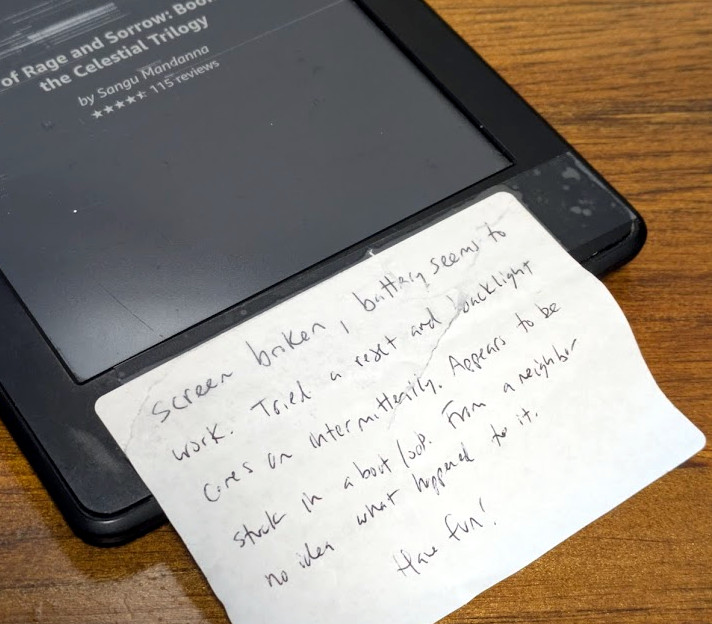 of Rage and Sorrow: Book
the Celestial Trilogy
by Sangu Mandanna
115 reviews
Screen broken, battery seems to
work. Tried a reset and backlight
comes on intermittently. Appears to be
stuck in a boot loop. From a neighbor
no idea what happened to it.
Have fun!